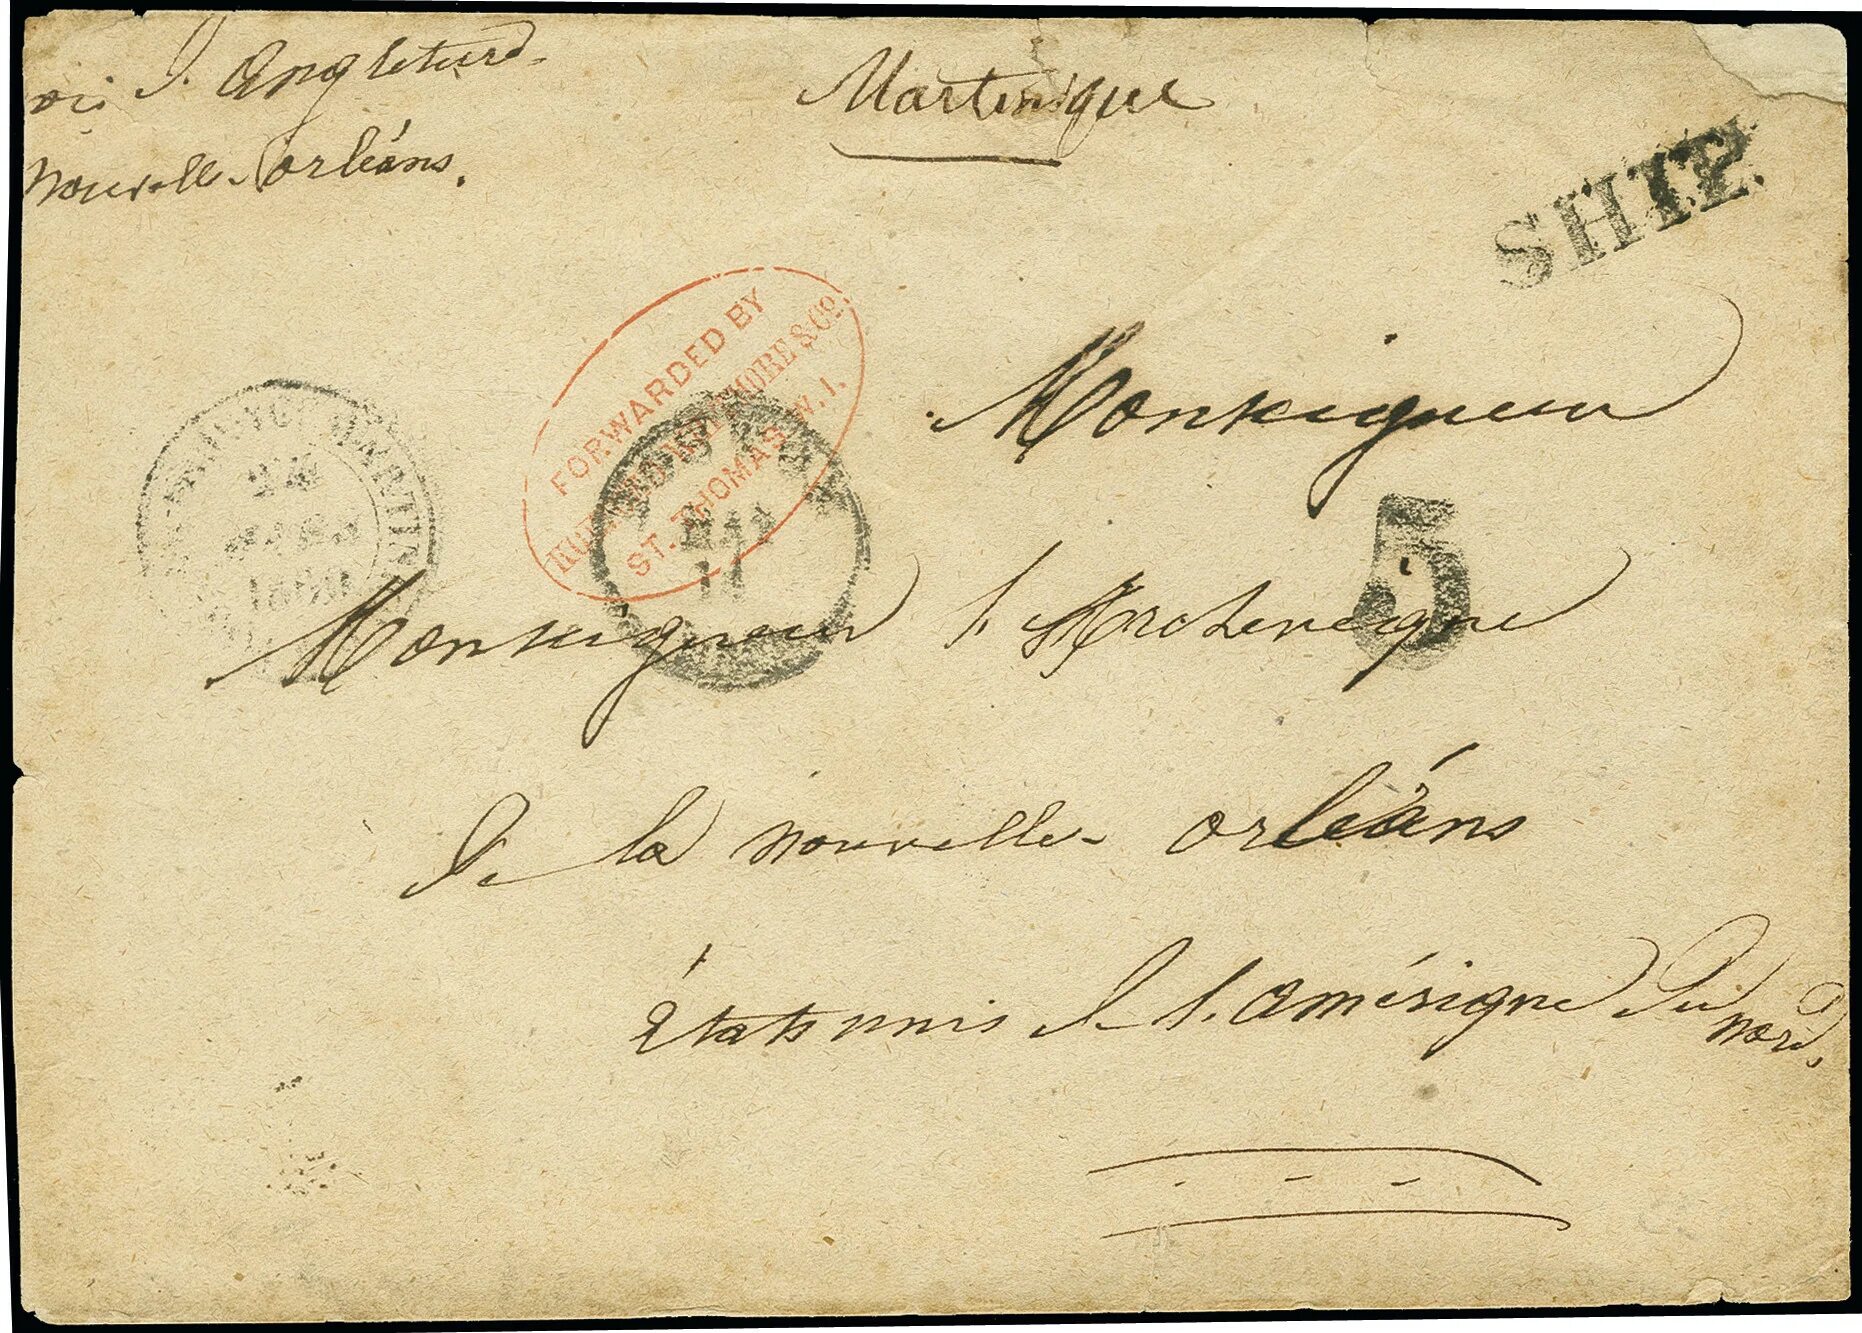 via l'Angleterre
Nouvelle-Orléans.
Martinique
SHIP.
FORWARDED BY
MORE & Co.
ST. THOMAS W. I.
MAR
11
24
5
Monseigneur
Monseigneur l'Archevêque
de la Nouvelle-Orléans
États unis de l'Amérique du
nord.